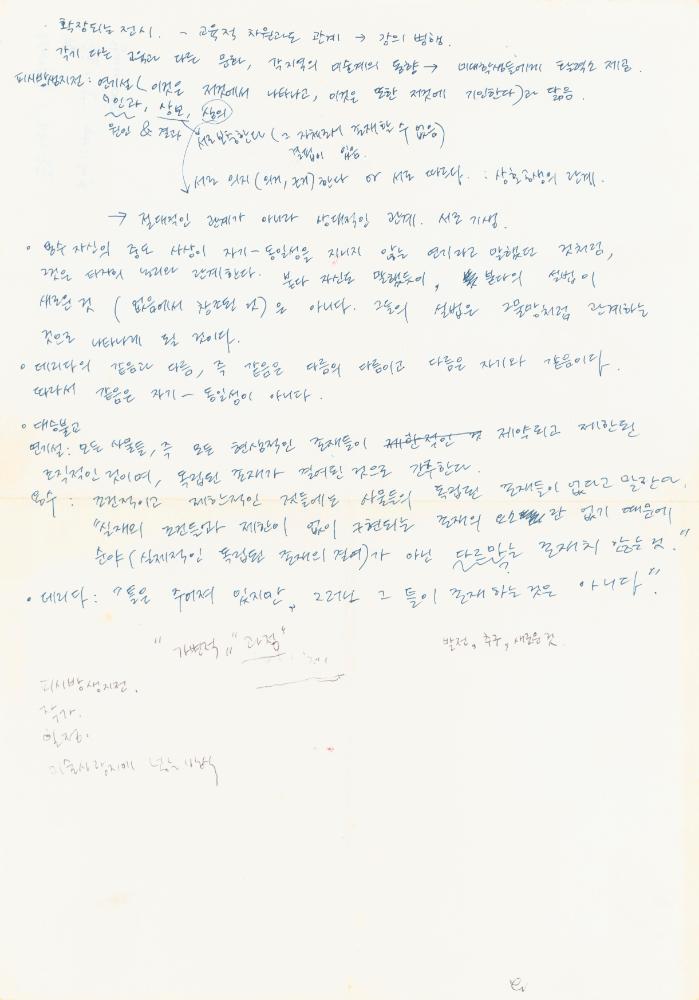 · 확장되는 전시. - 교육적 차원과도 관계 → 강의 병행.
각기 다른 교육과 다른 문화, 각 지역의 미술계의 동향 → 미대학생들에게 탄력소 제공.
피시방생지전 : 연기설 ( 이것은 저것에서 나타나고, 이것은 또한 저것에 기인한다 ) 과 닮음.
인과, 상보, 상의
원인 & 결과 서로 보충한다 ( 그 자체로서 존재할 수 없음)
결핍이 있음.
서로 의지 (의거, 근거) 한다 or 서로 따르다. : 상호공생의 관계.
→ 절대적인 관계가 아니라 상대적인 관계. 서로 기생.
· 용수 자신의 중도 사상이 자기-동일성을 지니지 않는 연기라고 말했던 것처럼,
그것은 타자의 논리와 관계한다. 붓다 자신도 말했듯이, 붓다의 설법이
새로운 것 ( 없음에서 창조된 것 ) 은 아니다. 그들의 설법은 그물망처럼 관계하는
것으로 나타나게 될 것이다.
· 데리다의 같음과 다름, 즉 같음은 다름의 다름이고 다름은 자기와 같음이다.
따라서 같음은 자기-동일성이 아니다.
· 대승불교
연기설 : 모든 사물들, 즉 모든 현상적인 존재들이 제한적인 것 제약되고 제한된
조직적인 것이며, 독립된 존재가 결여된 것으로 간주한다.
용수 : 조건적이고 제한적인 것들에도 사물들의 독립된 존재들이 없다고 말한다.
"실재의 조건들과 제한이 없이 구현되는 존재의 요소란 없기 때문에
순야 (실제적인 독립된 존재의 결여)가 아닌 존재치 않는 것."
· 데리다 : "틀은 주어져 있지만, 그러나 그 틀이 존재하는 것은 아니다".
"가변적", "과정"
발전, 추구, 새로운 것.
피시방생지전.
작가.
일정.
미술사랑지에 넣는 방식